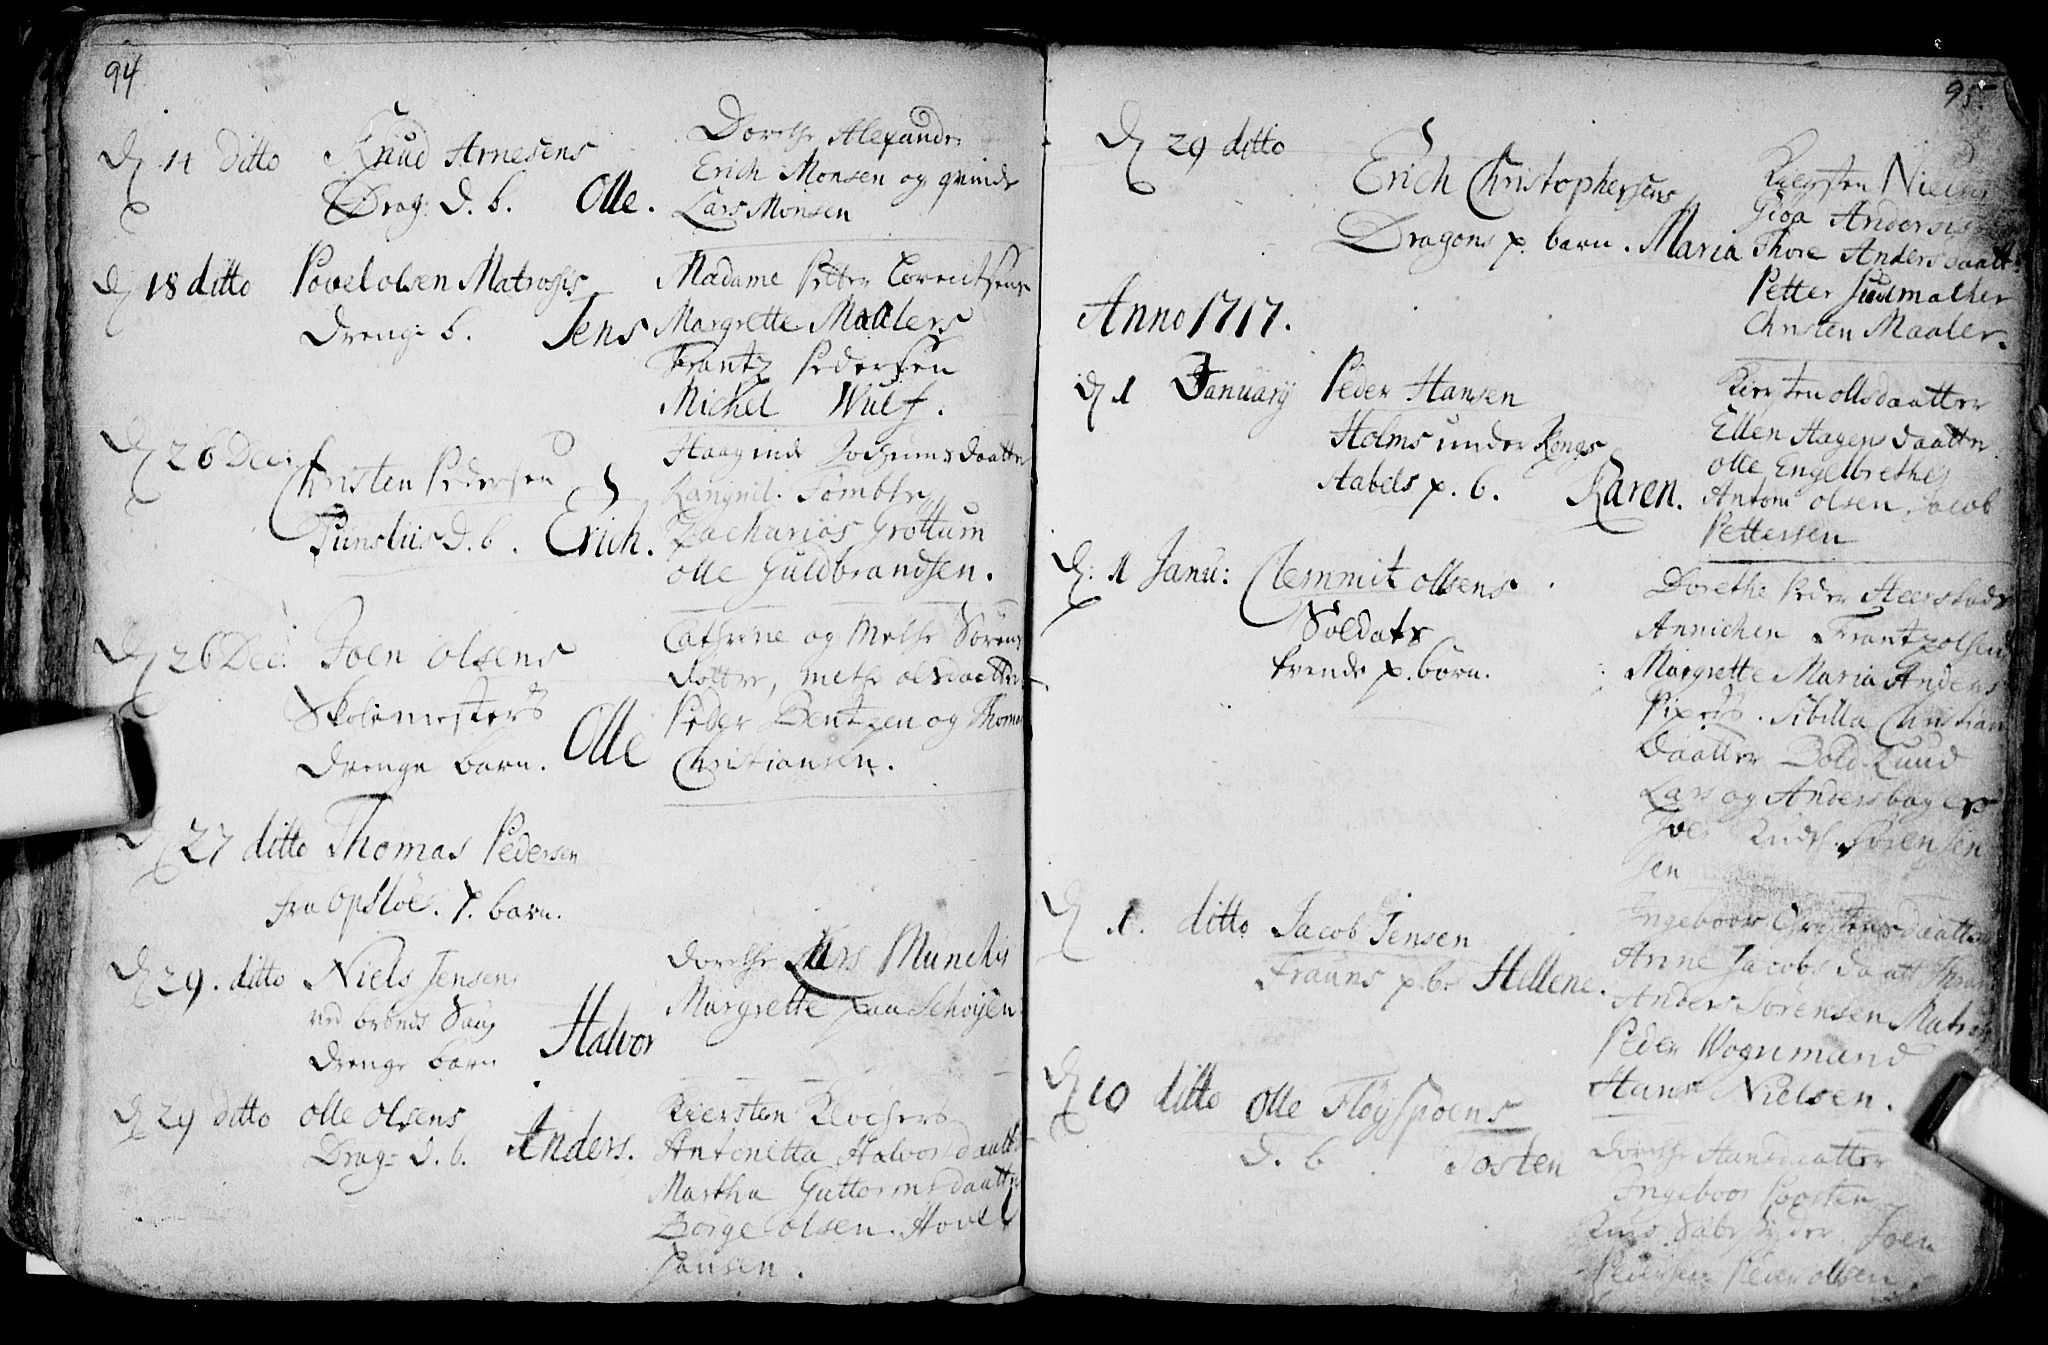 94
D 14 ditto Knud Arnesens
Drag: D. b. Olle.
Dorethe Alexanders
Erich Monsen og qvinde
Lars Monsen
D 18 ditto Povel olsen Matroses
Drenge b. Jens
Madame Petter Lorentsens
Margrette Maalers
Frantz Pedersen
Michel Wulf.
D 26 Dec: Christen Pedersen
D. b. Erich.
Jochumsdaatter
Zacharios Grottum
olle Guldbrandsen.
D 26 Dec: Joen olsens
Skolemesters
Drenge barn. Olle
Cathrine og Mette Sørens
dotter, Mette olsdaatter
Peder Bentzen og Thomas
Christiansen.
D 27 ditto Thomas Pedersen
fra opsloe. p. barn.
D 29. ditto Niels Jensens
ved Saug
drenge barn Halvor
Dorethe Lars Munchs
Margrette paa Schøyen
D 29 ditto olle olsens
Drag: d. b. Anders.
Kiersten Klochers
Antonetta Halvorsdaatter
Martha Guttormsdaatter
Børge olsen. Hovel
Hansen.
95.
D 29 ditto
Erich Christophersens
Dragons p. barn. Maria
Kiersten Niels
Gioa Anders
Thore Andersdaatt:
Petter
Christen Maaler.
Anno 1717.
D 1 January Peder Hansen
Holms under Kongs
stabels p. b. Karen.
Kiersten ollsdaatter
Ellen Hagensdaatter
olle Engelbrethes
Antoni olsen. Jacob
Pettersen
D: 1 Janu: Clemmit ollsens
Soldats
tvende p. børn.
Dorethe Peder
Annichen Frantz olsen
Margrette Maria Anders
Sibilla Christian
daatter Bold. Knud
Lars og Anders bagers
Sørensen
sen
D 1. ditto Jacob Jensen
Frauns p. b. Hellene.
Ingeboor daatter
Anne Jacobs daatt
Anders Sørensen Matros
Peder Wognmand
Hans Nielsen.
D 10 ditto Olle Fløyspoens
D. b. Tosten
Dorethe Hansdaatter
Ingeboor Poosten
Joen
Pedersen Peder ollsen